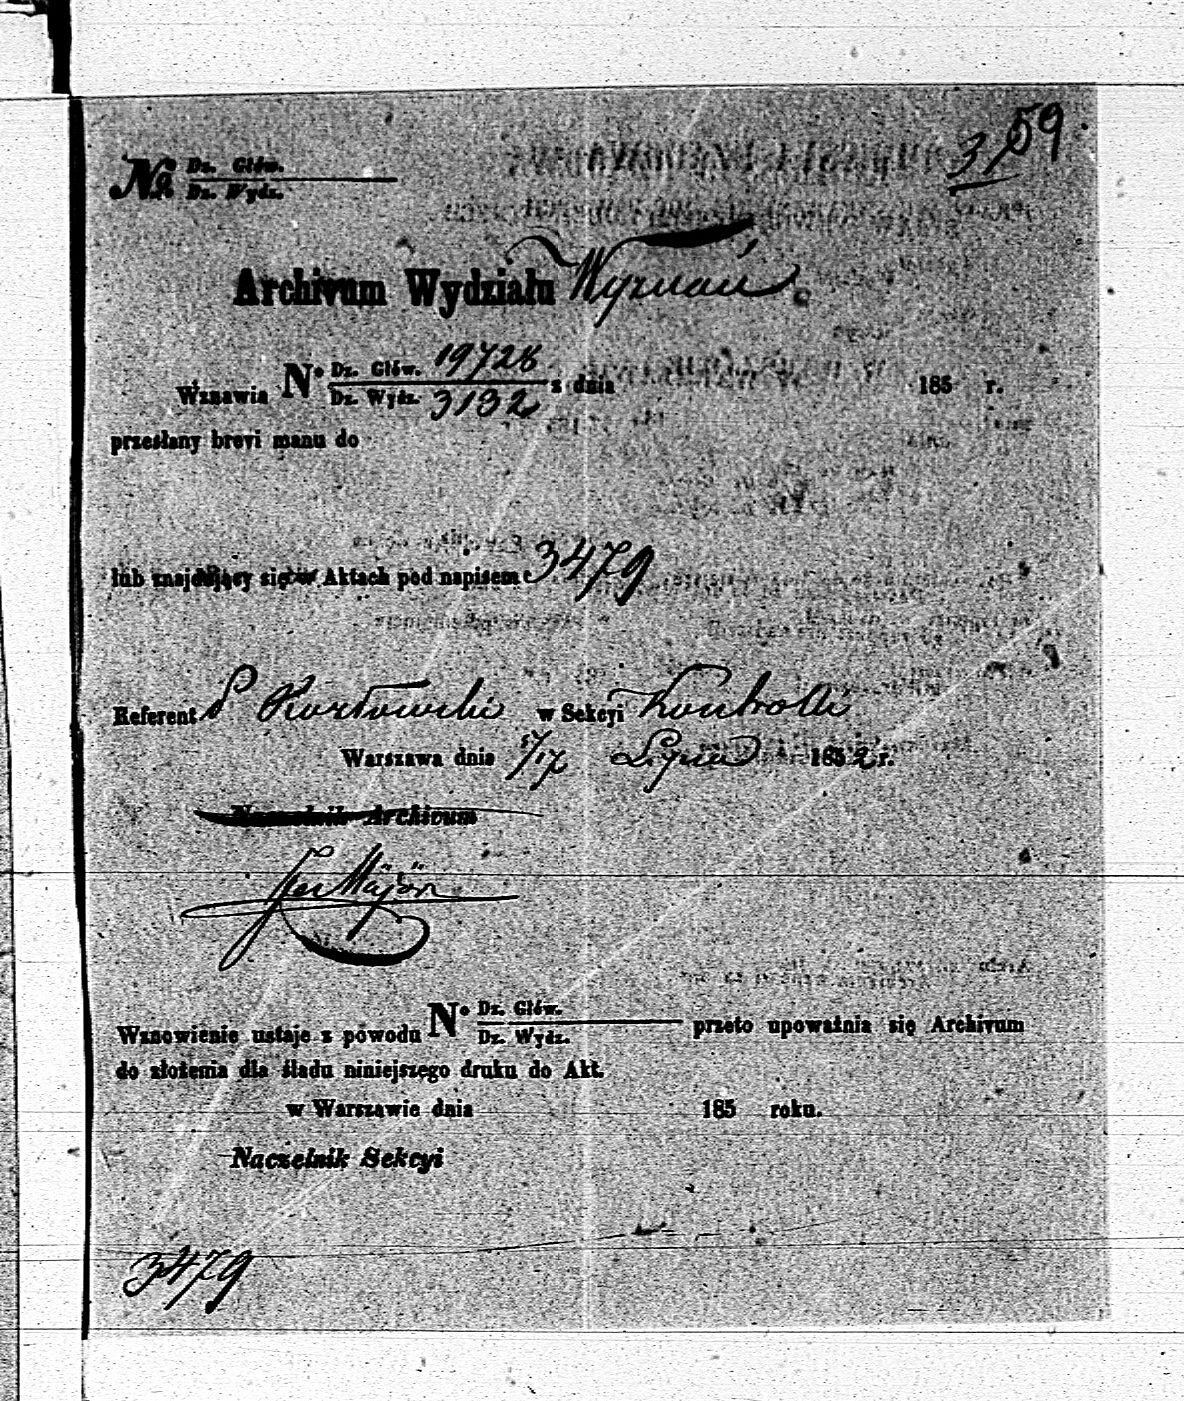 59
№ Dz. Głów.
Dz. Wydz.
Archivum Wydziału Wyznań
Wznawia N° Dz. Głów. 19728
Dz. Wydz. 3132 z dnia 185 r.
przesłany brevi manu do
lub znajdujący się w Aktach pod napisem 3479
Referent P Kozłowski w Sekcyi Kontroli
Warszawa dnia 5/17 Lipca 1852 r.
Naczelnik Archivum
Wznowienie ustaje z powodu N° Dz. Głów.
Dz. Wydz. przeto upoważnia się Archivum
do złożenia dla śladu niniejszego druku do Akt.
w Warszawie dnia 185 roku.
Naczelnik Sekcyi
3479